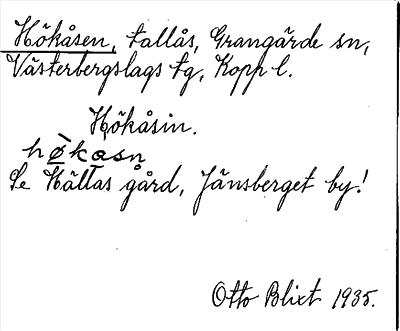 Hökåsen, tallås, Grangärde sn,
Västerbergslags tg, Kopp l.
Hökåsin.
hø̀kasn
Se Hällas gård, Jänsberget by!
Otto Blixt 1935.